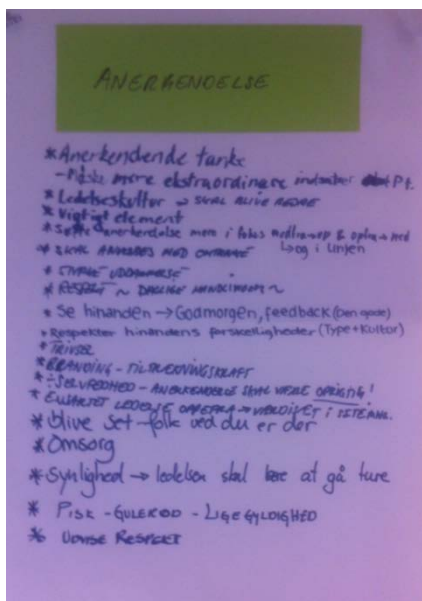 ANERKENDELSE
* Anerkendende tanke
- Måske mere ekstraordinære indsatser Pt.
* Ledelseskultur → SKAL BLIVE BEDRE
* Vigtigt element
* Sætte anerkendelse mere i fokus nedfra→op & opfra→ned
↳ og i linjen
* SKAL ANVENDES MED OMTANKE
* STYRKE UDDANNELSE
* RESPEKT ~ DAGLIGE HANDLINGER ~
* Se hinanden → Godmorgen, feedback (Den gode)
* Respekter hinandens forskelligheder (Type+Kultor)
* TRIVSEL
* BRANDING - TILTRÆKNINGSKRAFT
* SELVFEDHED - ANERKENDELSE SKAL VÆRE OPRIGTIG!
* LEDELSE OPPEFRA → VÆRDIVET I
* blive set - folk ved du er der
* Omsorg
* Synlighed → ledelsen skal lære at gå ture
* PISK - GULEROD - LIGEGYLDIGHED
* UDVISE RESPEKT